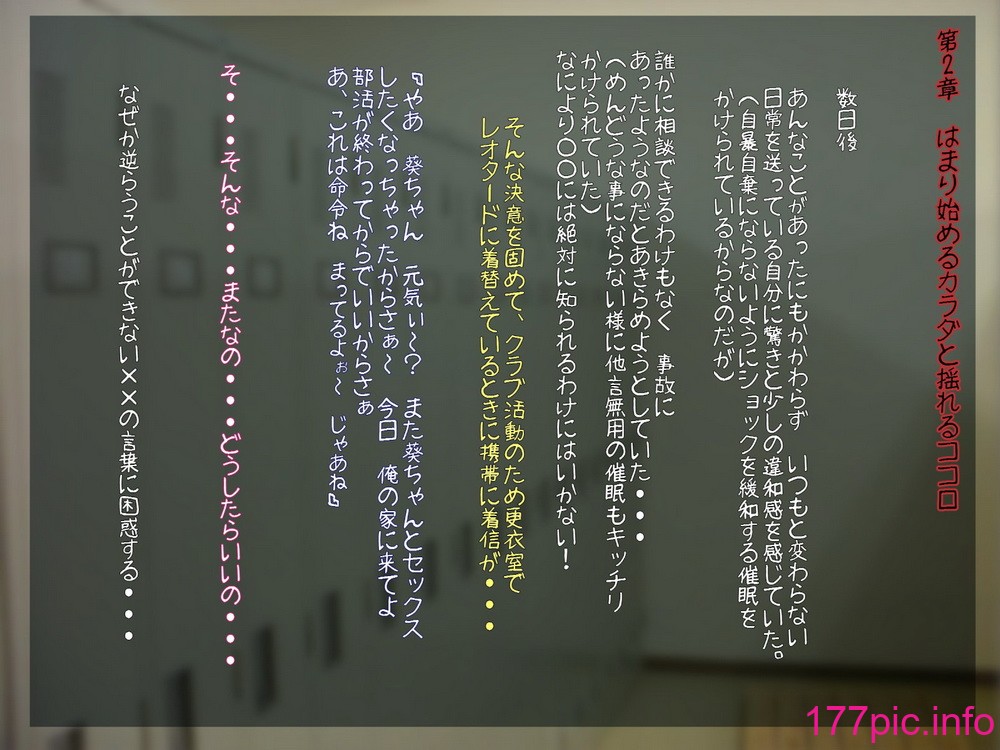 第2章　はまり始めるカラダと揺れるココロ
数日後
あんなことがあったにもかかわらず　いつもと変わらない
日常を送っている自分に驚きと少しの違和感を感じていた。
（自暴自棄にならないようにショックを緩和する催眠を
かけられているからなのだが）
誰かに相談できるわけもなく　事故に
あったようなのだとあきらめようとしていた・・・
（めんどうな事にならない様に他言無用の催眠もキッチリ
かけられていた）
なにより〇〇には絶対に知られるわけにはいかない！
そんな決意を固めて、クラブ活動のため更衣室で
レオタードに着替えているときに携帯に着信が・・・
『やあ　葵ちゃん　元気ぃ～？　また葵ちゃんとセックス
したくなっちゃったからさぁ～　今日　俺の家に来てよ
部活が終わってからでいいからさぁ
あ、これは命令ね　まってるよぉ～　じゃあね』
そ・・・そんな・・・またなの・・・どうしたらいいの・・・
なぜか逆らうことができない××の言葉に困惑する・・・
177pic.info